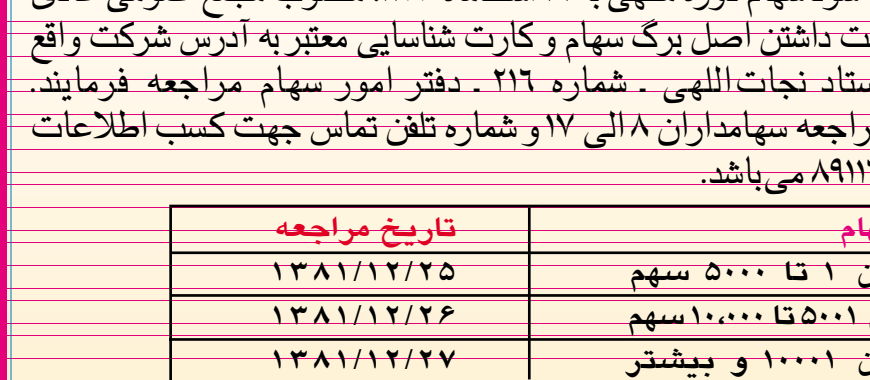 داشتن اصل برگ سهام و کارت شناسایی معتبر به آدرس شرکت واقع
نجات‌اللهی ـ شماره ۲۱۶ ـ دفتر امور سهام مراجعه فرمایند.
سهامداران ۸ الی ۱۷ و شماره تلفن تماس جهت کسب اطلاعات
می‌باشد.
تاریخ مراجعه
۱ تا ۵۰۰۰ سهم ۱۳۸۱/۱۲/۲۵
۵۰۰۱ تا ۱۰،۰۰۰ سهم ۱۳۸۱/۱۲/۲۶
۱۰۰۰۱ و بیشتر ۱۳۸۱/۱۲/۲۷